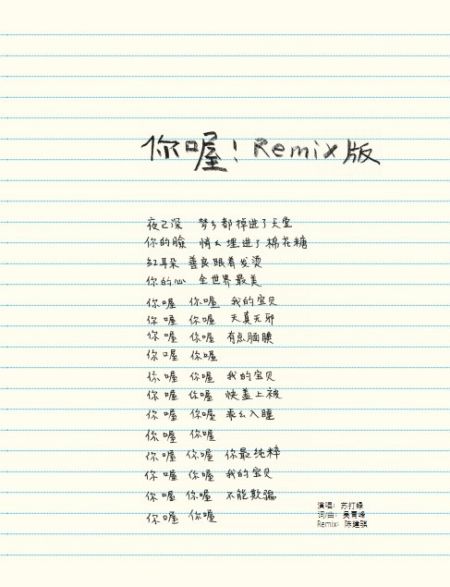 你喔！Remix版
夜已深 梦乡都掉进了天堂
你的臉 悄么埋进了棉花糖
紅耳朵 善良跟着发烫
你的心 全世界最美
你喔 你喔 我的宝贝
你喔 你喔 天真无邪
你喔 你喔 有点腼腆
你喔 你喔
你喔 你喔 我的宝贝
你喔 你喔 快盖上被
你喔 你喔 乖么入睡
你喔 你喔
你喔 你喔 你最纯粹
你喔 你喔 我的宝贝
你喔 你喔 不能欺骗
你喔 你喔
演唱：苏打绿
词/曲：吴青峰
Remix：陈建骐